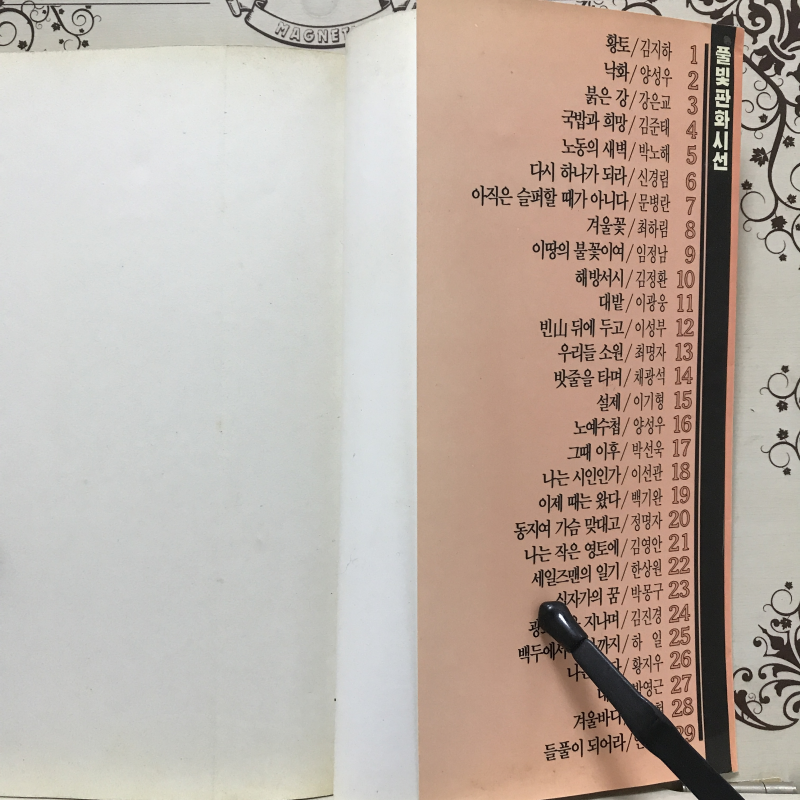 MAGNET
풀빛판화시선
황토/김지하 1
낙화/양성우 2
붉은 강/강은교 3
국밥과 희망/김준태 4
노동의 새벽/박노해 5
다시 하나가 되라/신경림 6
아직은 슬퍼할 때가 아니다/문병란 7
겨울꽃/최하림 8
이땅의 불꽃이여/임정남 9
해방서시/김정환 10
대밭/이광웅 11
빈山 뒤에 두고/이성부 12
우리들 소원/최명자 13
밧줄을 타며/채광석 14
설제/이기형 15
노예수첩/양성우 16
그때 이후/박선욱 17
나는 시인인가/이선관 18
이제 때는 왔다/백기완 19
동지여 가슴 맞대고/정명자 20
나는 작은 영토에/김영안 21
세일즈맨의 일기/한상원 22
십자가의 꿈/박몽구 23
지나며/김진경 24
백두에서 까지/하 일 25
황지우 26
박영근 27
겨울바다 28
들풀이 되어라/ 29